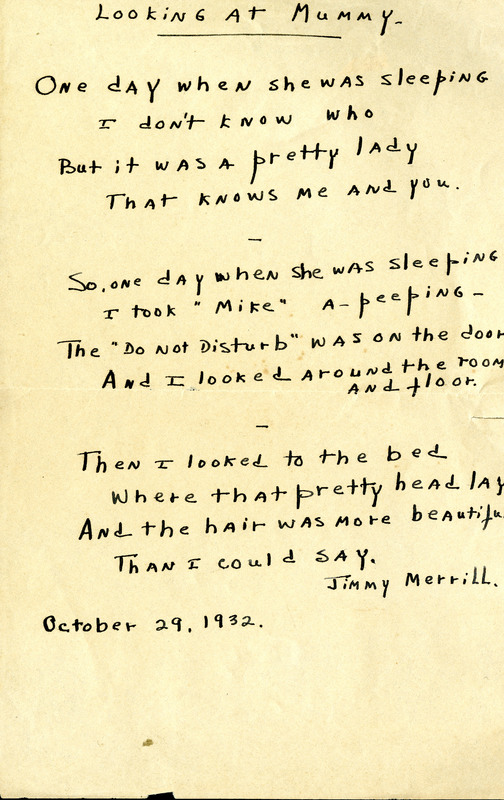 Looking At Mummy.
One day when she was sleeping
I don't know who
But it was a pretty lady
That knows me and you.
-
So, one day when she was sleeping
I took "Mike" a-peeping-
The "Do Not Disturb" was on the door
And I looked around the room
and floor.
-
Then I looked to the bed
Where that pretty head lay
And the hair was more beautifu
Than I could say.
Jimmy Merrill.
October 29, 1932.